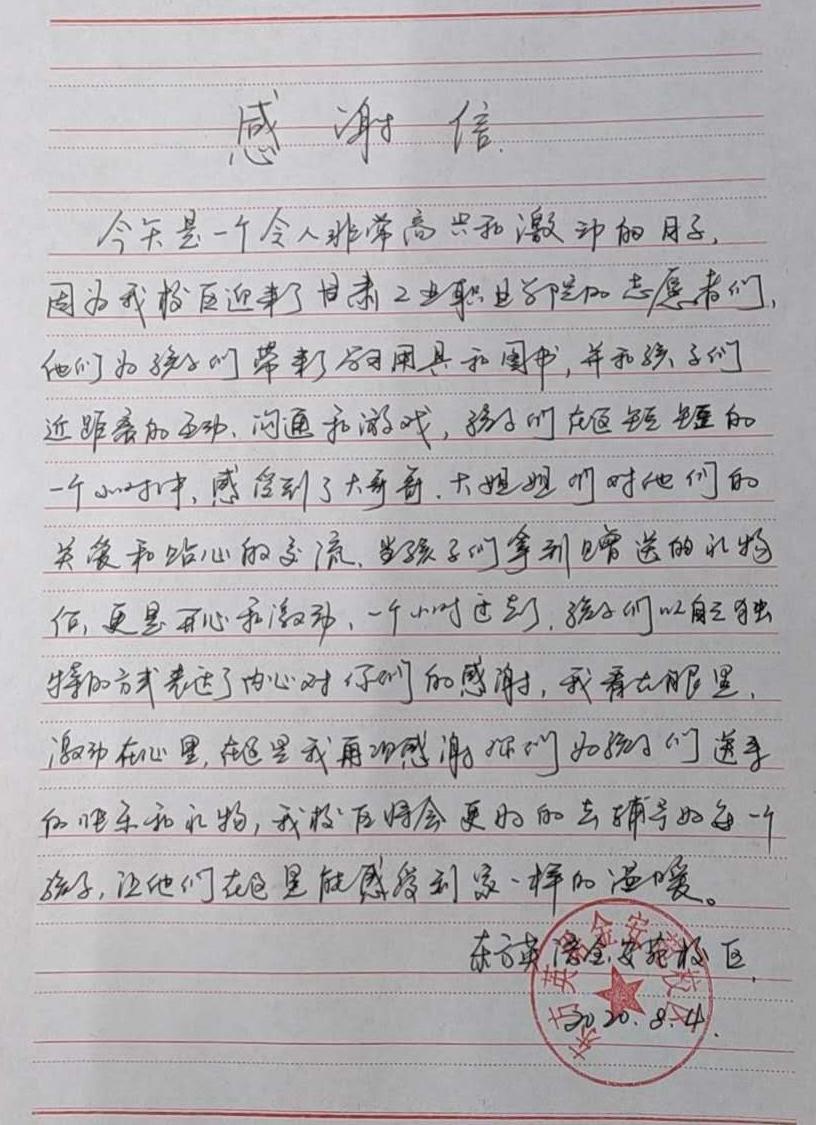 感谢信
今天是一个令人非常高兴和激动的日子,
因为我校区迎来了甘肃工业职业学院的志愿者们,
他们为孩子们带来了学习用具和图书,并和孩子们
近距离的互动、沟通和游戏,孩子们在这短短的
一个小时中,感受到了大哥哥、大姐姐们对他们的
关爱和贴心的交流、当孩子们拿到赠送的礼物
后,更是开心和激动、一个小时过去了,孩子们以自己独
特的方式表达了内心对你们的感谢,我看在眼里,
激动在心里,在这里我再次感谢你们为孩子们送来
的快乐和礼物,我校区将会更好的去辅导好每一个
孩子,让他们在这里能感受到家一样的温暖。
东方英语金安苑校区
2020.8.4.
东方英语金安苑校区